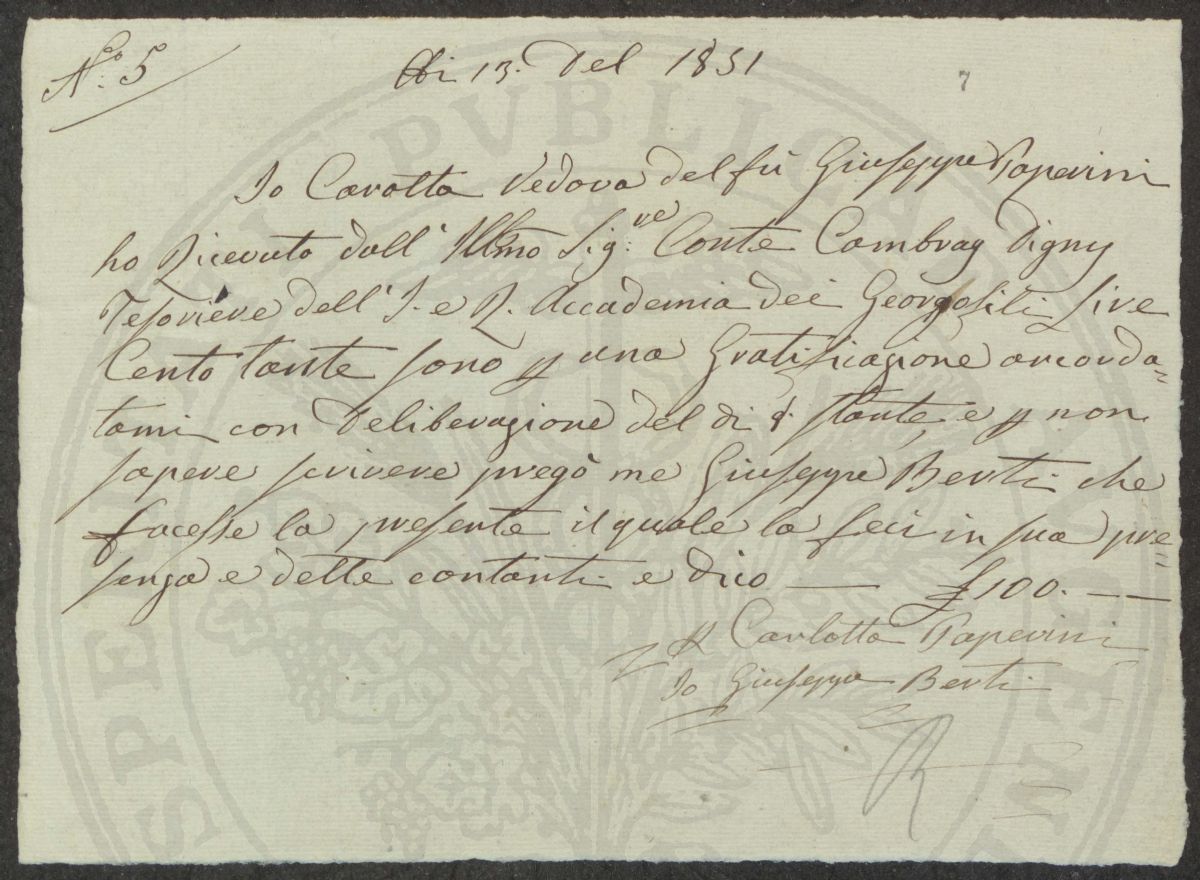 N.° 5
Adi 13. Del 1851
7
Io Carotta Vedova del fù Giuseppe Paperini
ho Ricevuto dall' Illmo Sig.re Conte Cambray Digny
Tesoriere dell' I. e R. Accademia dei Georgofili Lire
Cento tante sono p una Gratificazione accorda=
tami con Deliberazione del di stante, e p non
sapere scrivere pregò me Giuseppe Berti che
facesse la presente il quale la feci in sua pre=
senza e dette contanti e dico — £ 100. — —
p Carlotta Paperini
Io Giuseppe Berti
R
SPERNAT PUBLICA